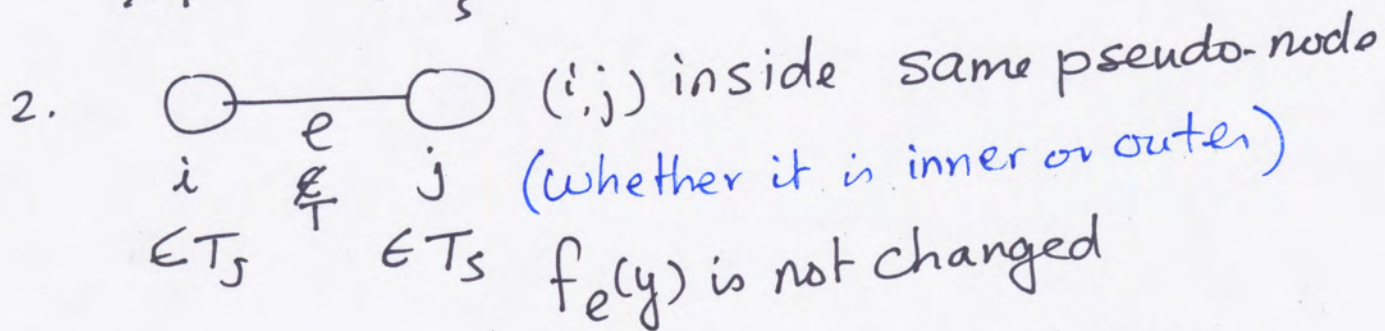 s
2. (i,j) inside same pseudo-node
e
i ∉ j (whether it is inner or outer)
T
∈Ts ∈Ts fe(y) is not changed